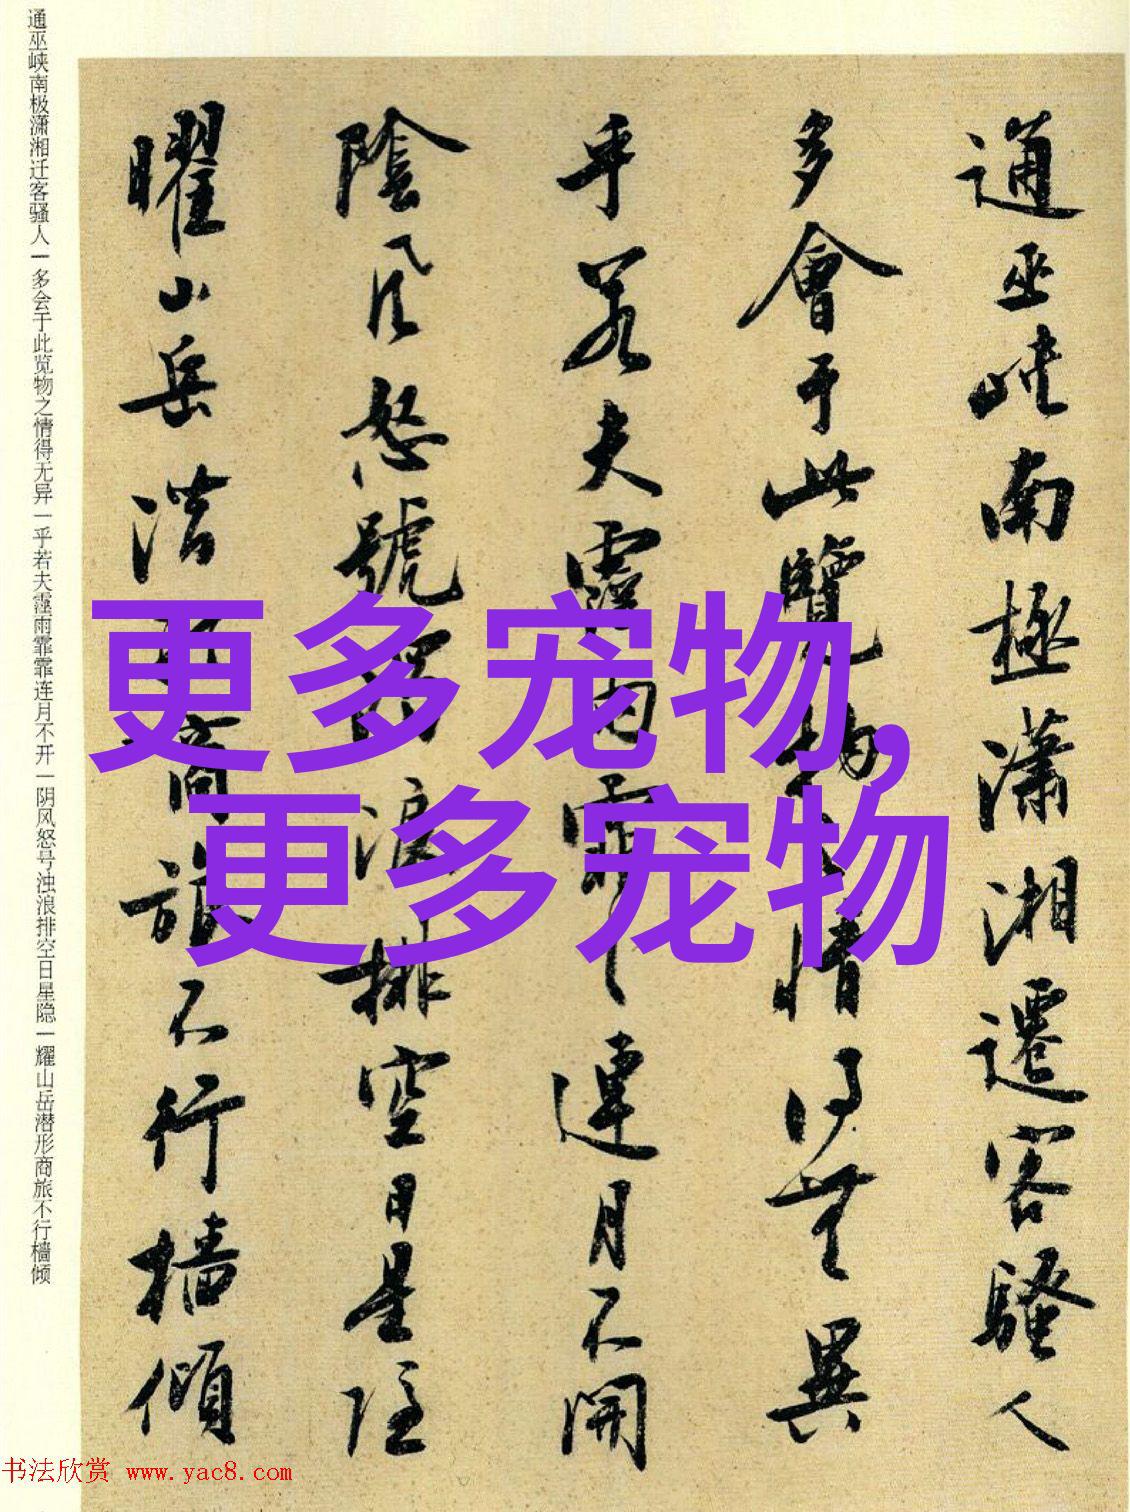 通巫峽南極瀟湘遷客騷人
多會于此覽物之情得無異
乎若夫霪雨霏〻連月不開
陰風怒號濁浪排空日星隱
曜山岳潛形商旅不行檣傾
通巫峡南极潇湘迁客骚人一多会于此览物之情得无异一乎若夫霪雨霏霏连月不开一阴风怒号浊浪排空日星隐一耀山岳潜形商旅不行樯倾
更多宠物,
更多宠物
书法欣赏 www.yac8.com